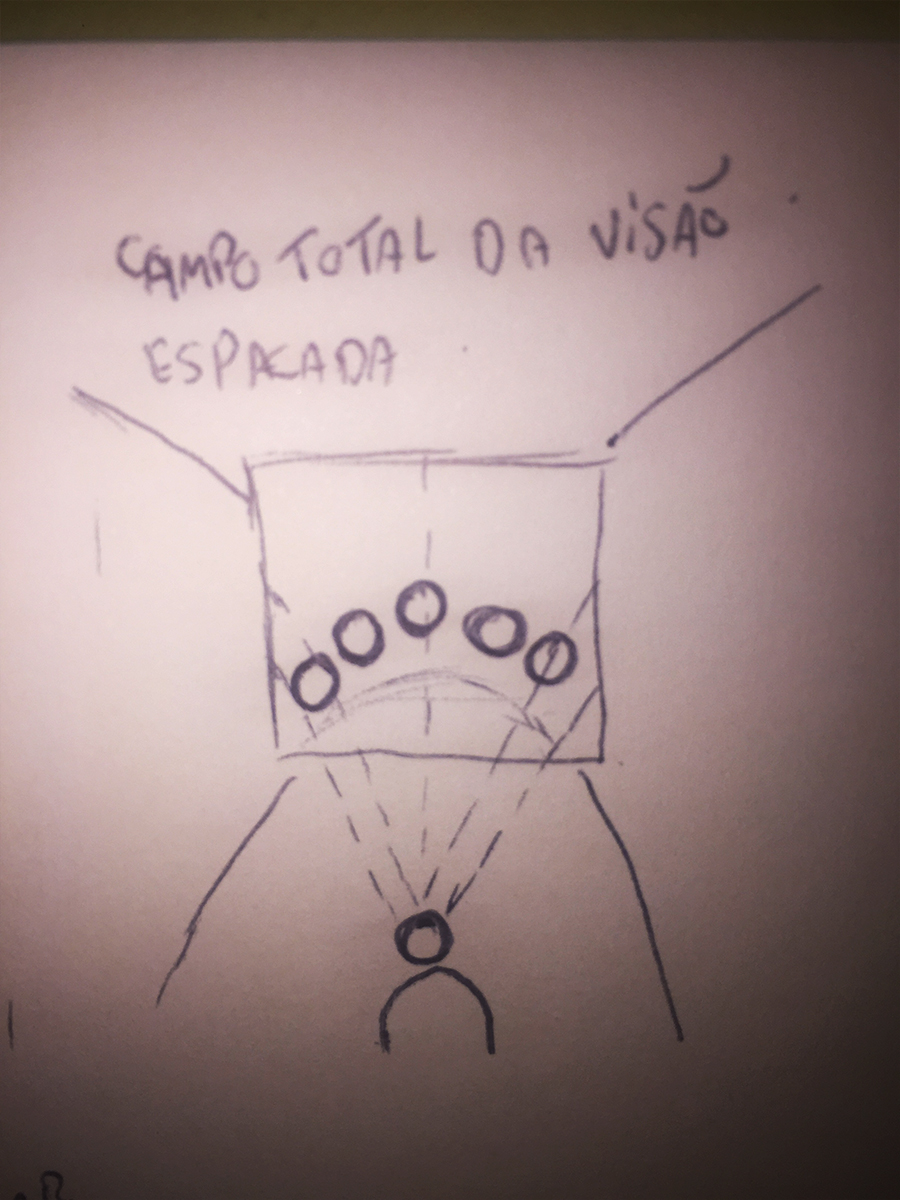 CAMPO TOTAL DA VISÃO
ESPACADA